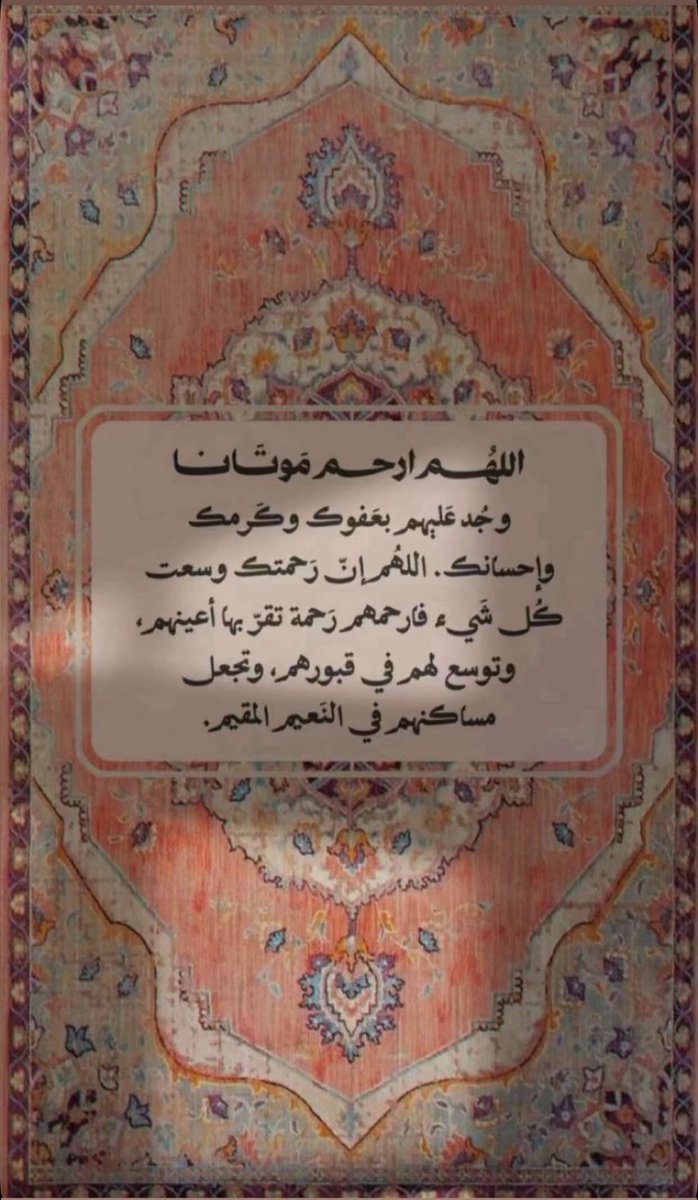 اللهُم ارحم مَوتَانا
وجُد عَليهم بعَفوك وكَرمك
وإحسانك. اللهُم إنّ رَحمتك وسعت
كُل شَيء فارحمهم رَحمة تقرّ بها أعينهم،
وتوسع لهم في قبورهم، وتجعل
مساكنهم في النَعيم المقيم.